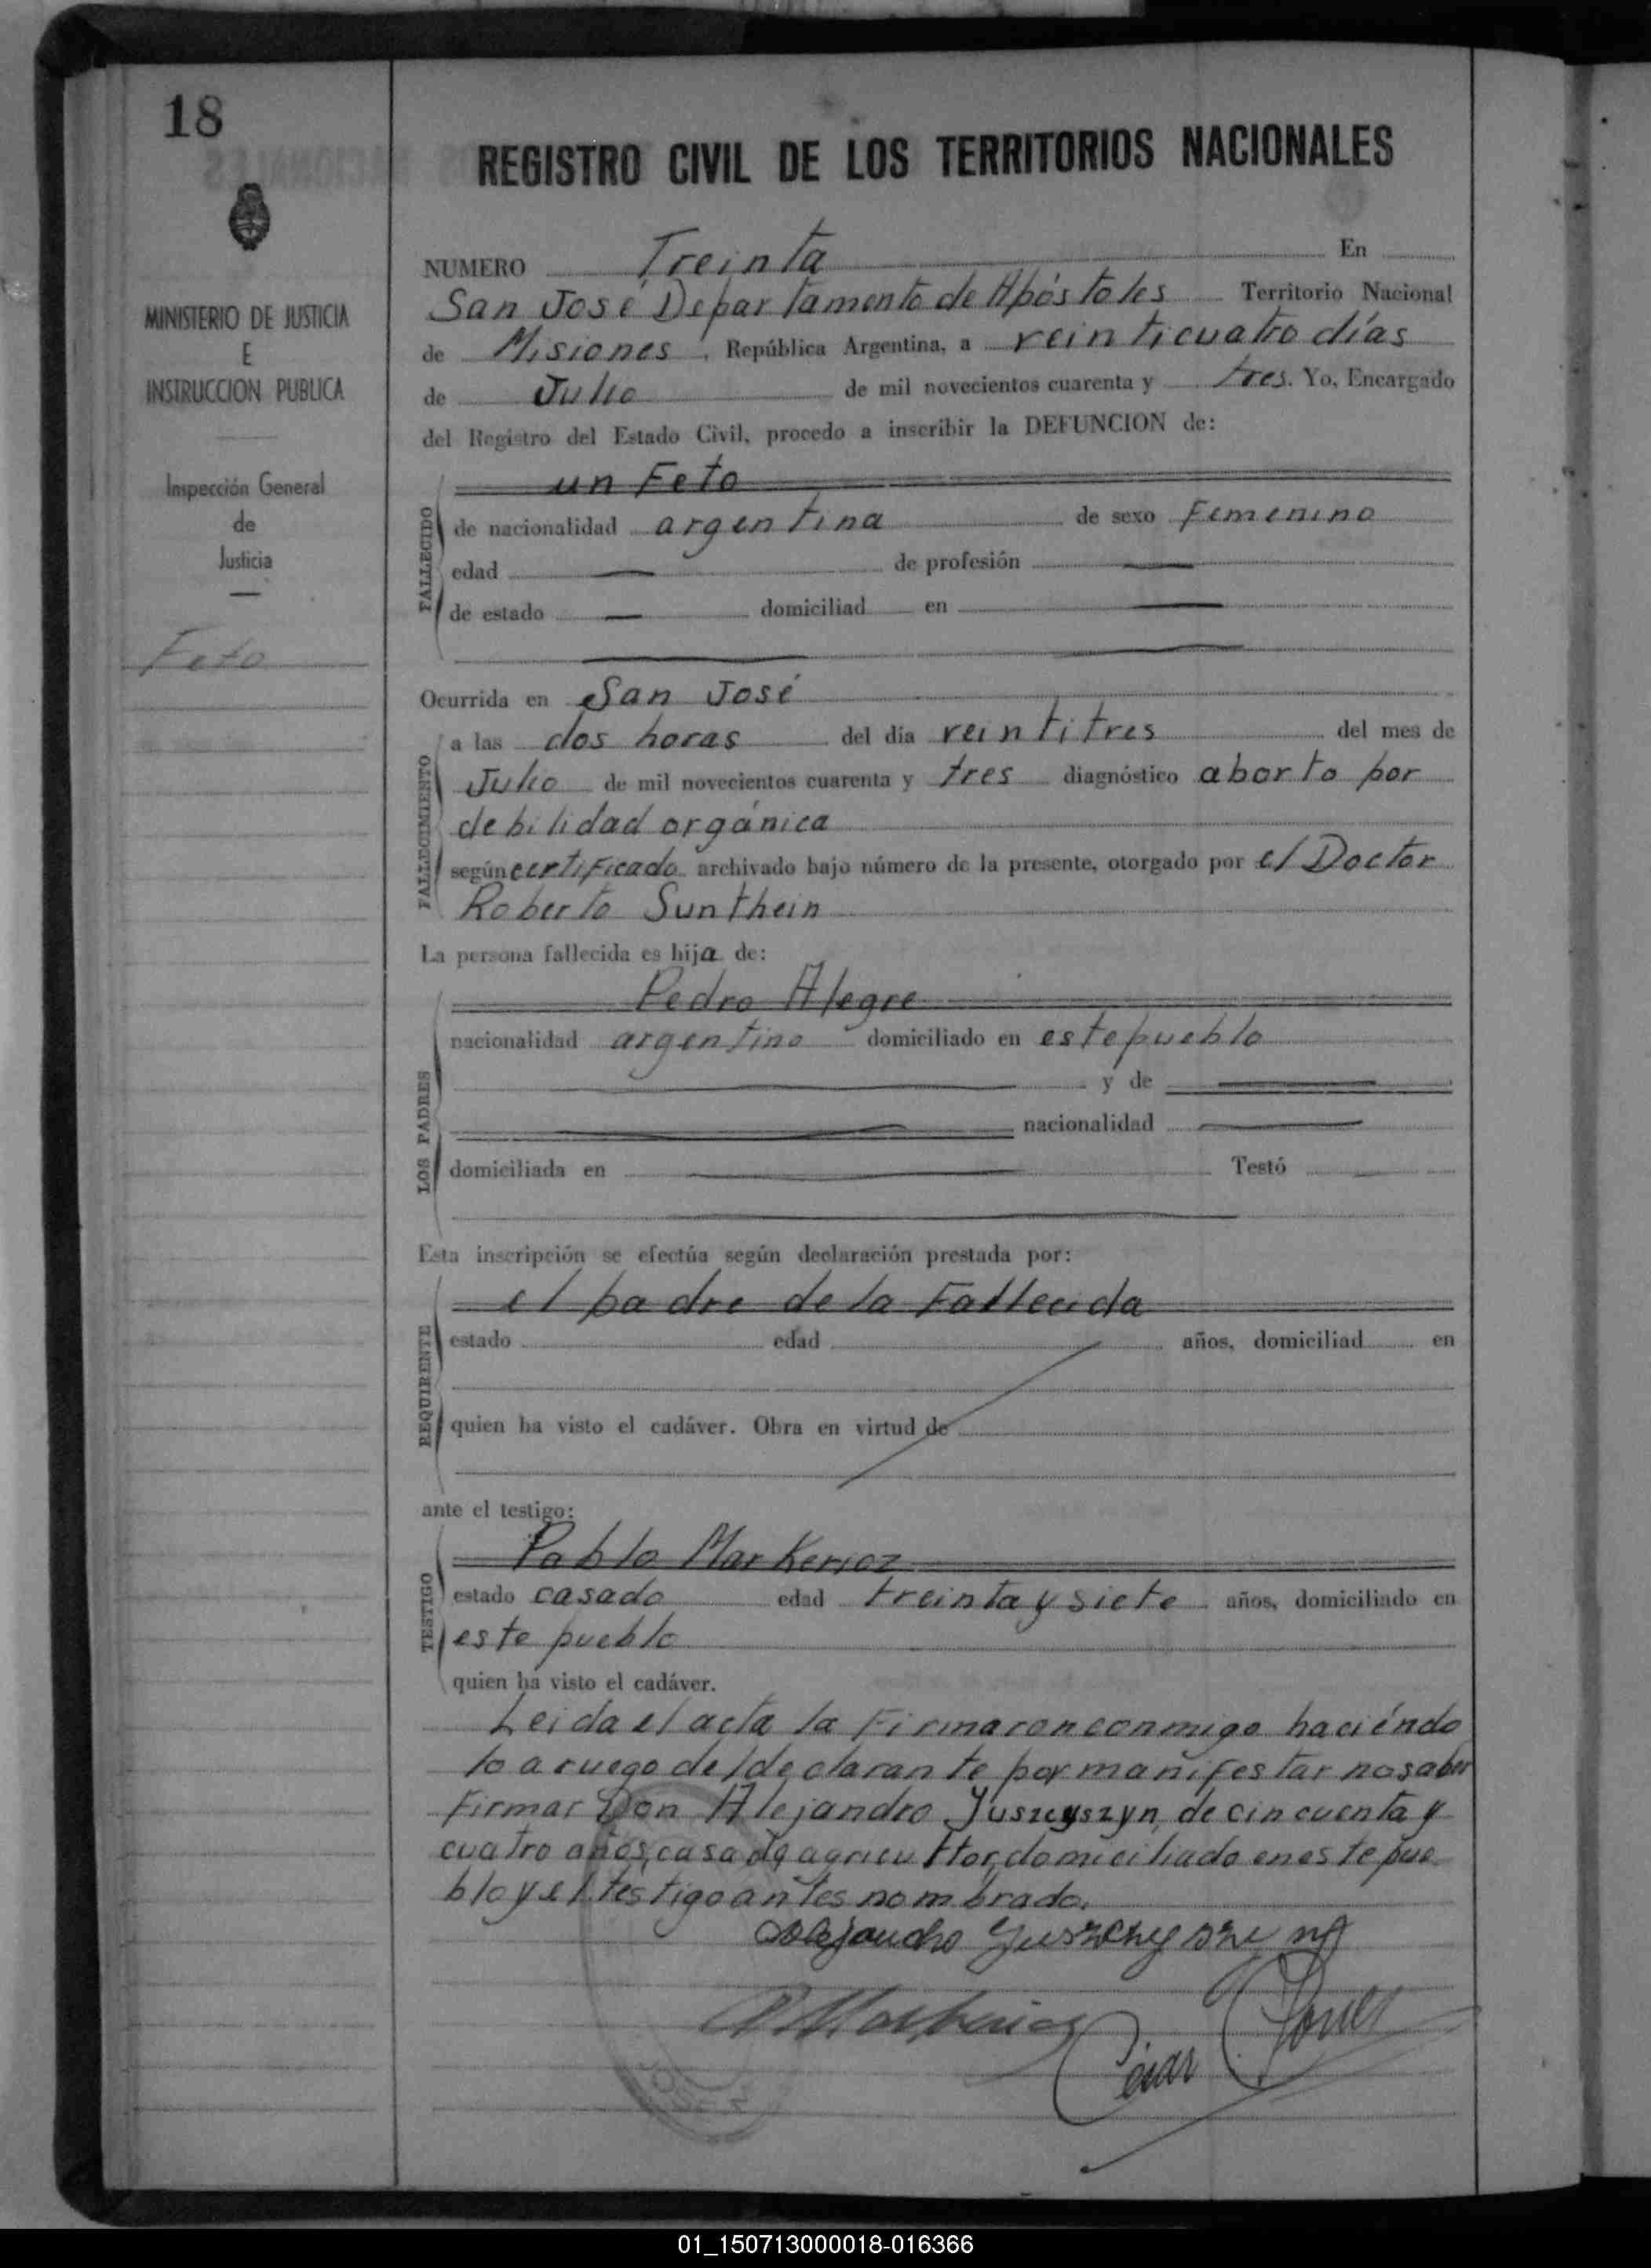 18
MINISTERIO DE JUSTICIA
E
INSTRUCCION PUBLICA
Inspección General
de
Justicia
Feto
REGISTRO CIVIL DE LOS TERRITORIOS NACIONALES
NUMERO Treinta En
San José Departamento de Apóstoles Territorio Nacional
de Misiones, República Argentina, a veinticuatro días
de Julio de mil novecientos cuarenta y tres. Yo, Encargado
del Registro del Estado Civil, procedo a inscribir la DEFUNCION de:
un Feto
FALLECIDO
de nacionalidad argentina de sexo Femenino
edad — de profesión —
de estado — domiciliad en —
Ocurrida en San José
FALLECIMIENTO
a las dos horas del día veintitres del mes de
Julio de mil novecientos cuarenta y tres diagnóstico aborto por
debilidad orgánica
según certificado archivado bajo número de la presente, otorgado por el Doctor
Roberto Sunthein
La persona fallecida es hija de:
LOS PADRES
Pedro Alegre
nacionalidad argentino domiciliado en este pueblo
y de
nacionalidad
domiciliada en Testó
Esta inscripción se efectúa según declaración prestada por:
REQUIRENTE
el padre de la Fallecida
estado edad años, domiciliad en
quien ha visto el cadáver. Obra en virtud de
ante el testigo:
TESTIGO
Pablo
estado casado edad treinta y siete años, domiciliado en
este pueblo
quien ha visto el cadáver.
Leida el acta la Firmaron conmigo haciéndo
lo a ruego del declarante por manifestar no saber
firmar Don Alejandro Juszcyszyn, de cincuenta y
cuatro años, casado, agricultor, domiciliado en este pue
blo y el testigo antes nombrado.
Alejandro
César
01_150713000018-016366